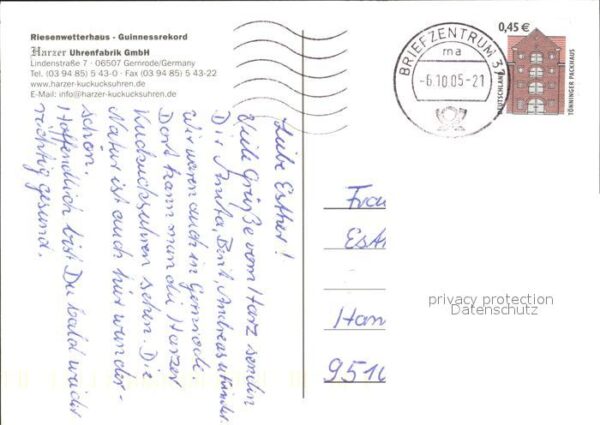 Riesenwetterhaus - Guinnessrekord
Harzer Uhrenfabrik GmbH
Lindenstraße 7 · 06507 Gernrode/Germany
Tel. (03 94 85) 5 43-0 · Fax (03 94 85) 5 43-22
www.harzer-kuckucksuhren.de
E-Mail: info@harzer-kuckucksuhren.de
Liebe Esther!
Viele Grüße vom Harz senden
Dir Anita, Berit, Andreas u Kinder.
Wir waren auch in Gernrode.
Dort kann man die Harzer
Kuckucksuhren sehen. Die
Natur ist auch hier wunder-
schön.
Hoffentlich bist Du bald wieder
richtig gesund.
BRIEFZENTRUM 37
ma
-6.10.05-21
0,45 €
DEUTSCHLAND
TÖNNINGER PACKHAUS
Frau
Est
Han
9510
privacy protection
Datenschutz